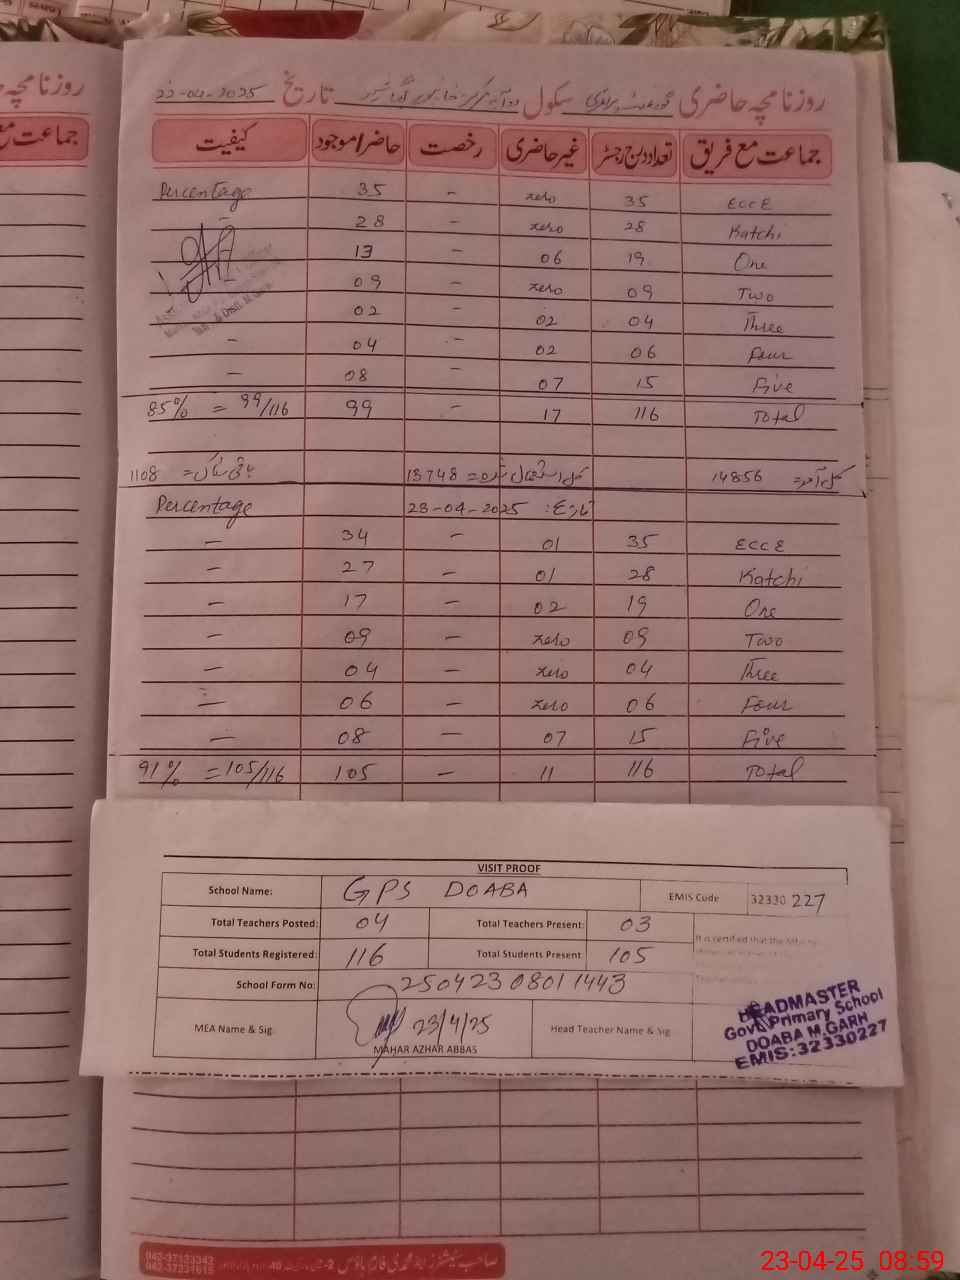 روزنامچہ حاضری گورنمنٹ پرائمری سکول دوآبہ تاریخ 22-04-2025
جماعت مع فریق تعداد درج رجسٹر غیر حاضری رخصت حاضر/موجود کیفیت
ECCE 35 zero - 35 Percentage
Katchi 28 zero - 28 -
One 19 06 - 13
Two 09 zero - 09
Three 04 02 - 02
Four 06 02 - 04 -
Five 15 07 - 08 -
Total 116 17 - 99 99/116 = 85%
کل آمد = 14856 کل استعمال شدہ = 13748 باقی سٹاک = 1108
تاریخ: 23-04-2025 Percentage
ECCE 35 01 - 34 -
Katchi 28 01 - 27 -
One 19 02 - 17 -
Two 09 zero - 09 -
Three 04 zero - 04 -
Four 06 zero - 06 -
Five 15 07 - 08 -
Total 116 11 - 105 105/116 = 91%
VISIT PROOF
School Name: GPS DOABA EMIS Code 32330 227
Total Teachers Posted: 04 Total Teachers Present: 03
It is certified that the
Total Students Registered: 116 Total Students Present 105
School Form No: 25042308011443
MEA Name & Sig 23/4/25 Head Teacher Name & Sig
MAHAR AZHAR ABBAS
HEADMASTER
Govt. Primary School
DOABA M.GARH
EMIS:32330227
جماعت مع
روزنامچہ
042-37133342
23-04-25 08:59